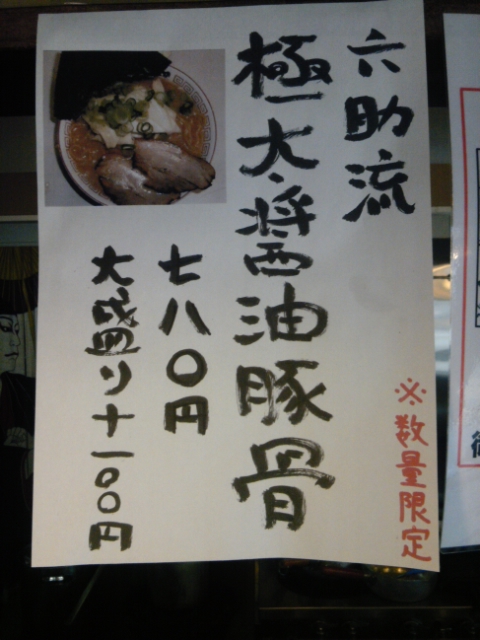 六助流
極太醤油豚骨
七八〇円
大盛り+一〇〇円
※数量限定